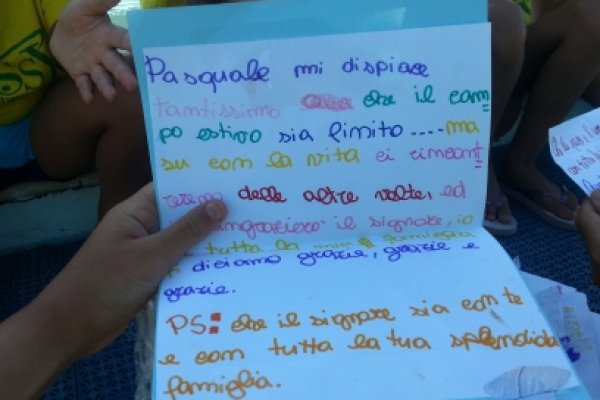 Pasquale mi dispiace
tantissimo che il cam=
po estivo sia finito .... ma
su con la vita ci rincont=
reremo delle altre volte, ed
il signore, io
e tutta la mia famiglia
ti diciamo grazie, grazie e
grazie.
PS: che il signore sia con te
e con tutta la tua splendida
famiglia.